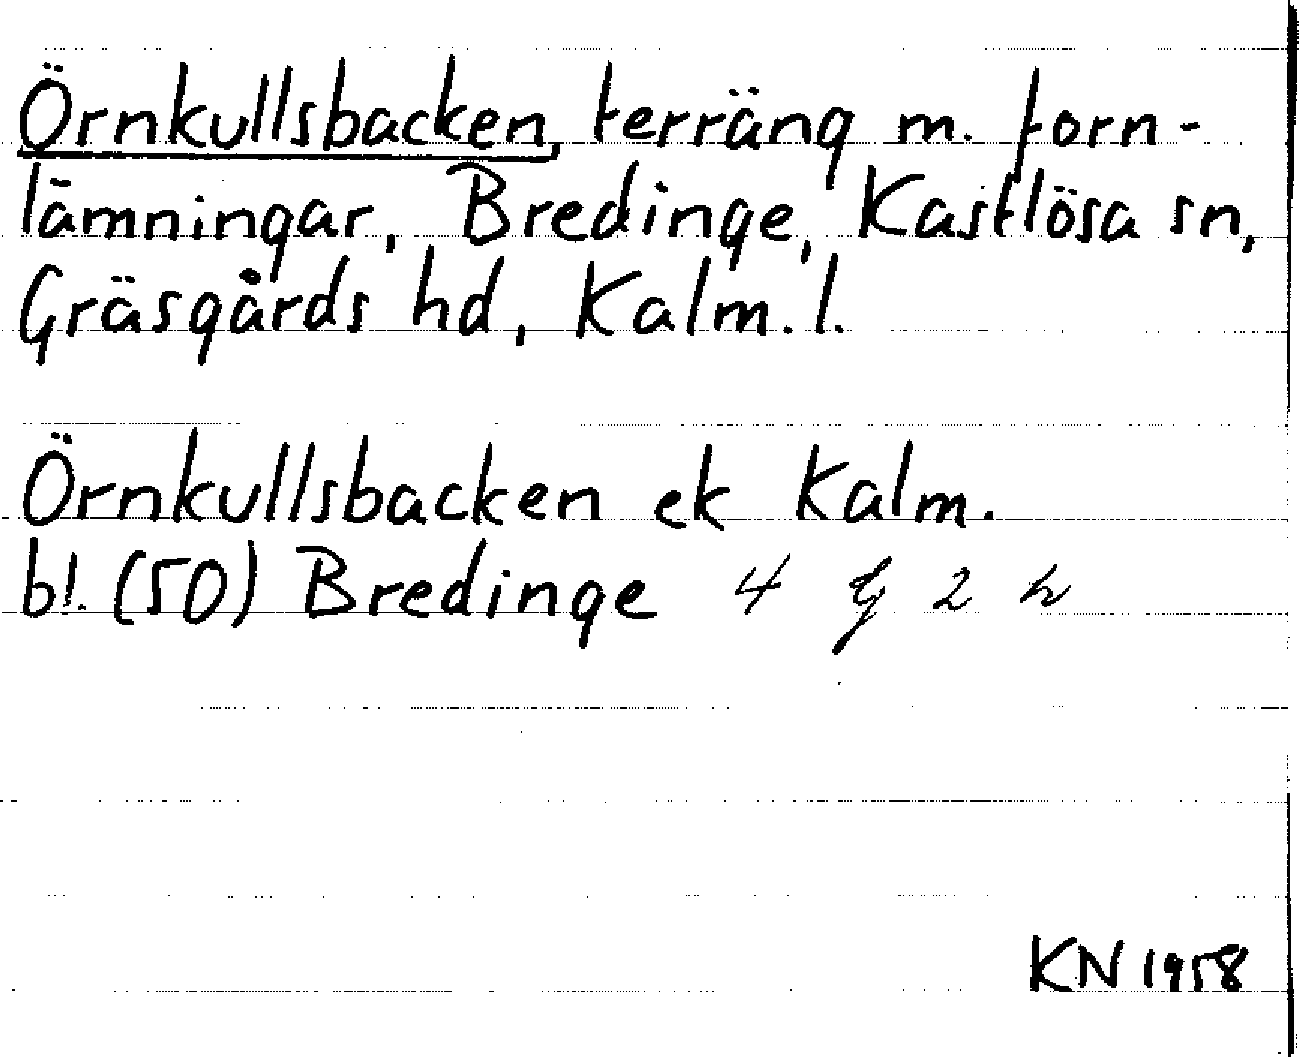 Örnkullsbacken, terräng m. forn-
lämningar, Bredinge, Kastlösa sn,
Gräsgårds hd, Kalm. l.
Örnkullsbacken ek Kalm.
bl. (50) Bredinge 4 G 2 h
KN 1958